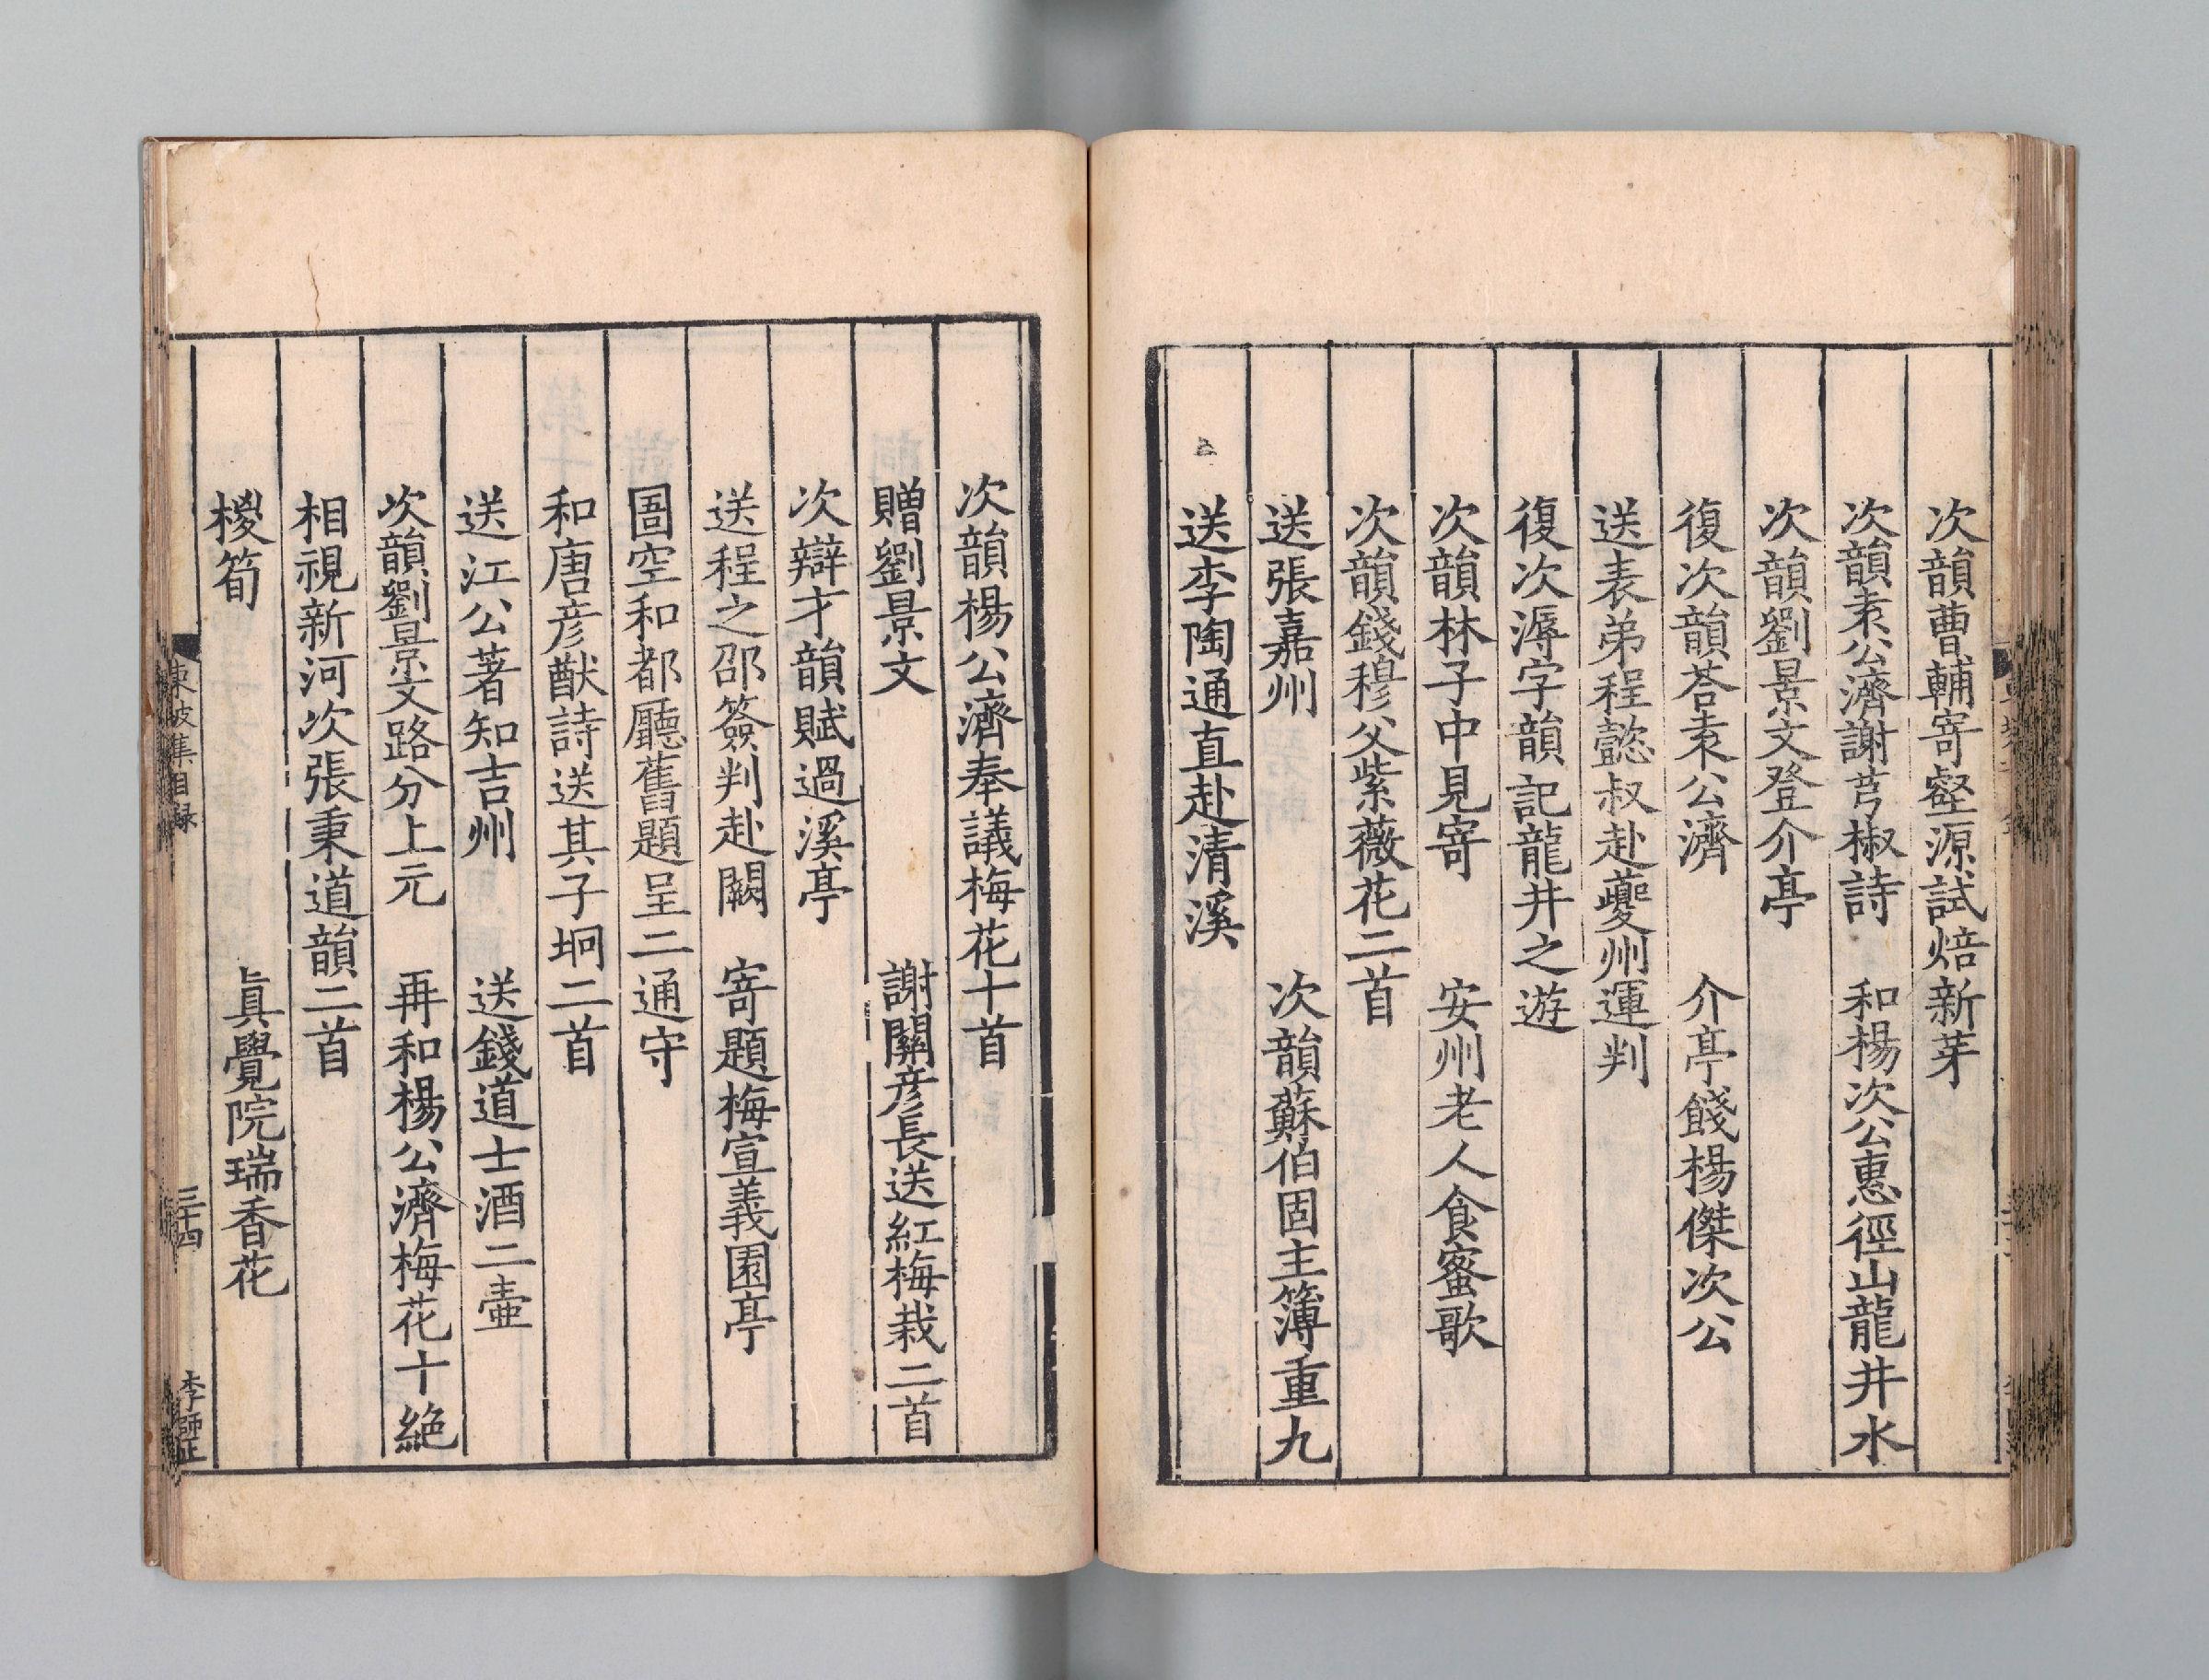 次韻曹輔寄壑源試焙新芽
次韻袁公濟謝芎椒詩　和楊次公惠徑山龍井水
次韻劉景文登介亭
復次韻荅袁公濟　介亭餞楊傑次公
送表弟程懿叔赴夔州運判
復次溽字韻記龍井之遊
次韻林子中見寄　安州老人食蜜歌
次韻錢穆父紫薇花二首
送張嘉州　次韻蘇伯固主簿重九
送李陶通直赴清溪
次韻楊公濟奉議梅花十首
贈劉景文　謝關彦長送紅梅栽二首
次辯才韻賦過溪亭
送程之邵簽判赴闕　寄題梅宣義園亭
圄空和都廳舊題呈二通守
和唐彦猷詩送其子坰二首
送江公著知吉州　送錢道士酒二壷
次韻劉景文路分上元　再和楊公濟梅花十絶
相視新河次張秉道韻二首
椶筍　眞覺院瑞香花
東坡集目録
三十四
李師正